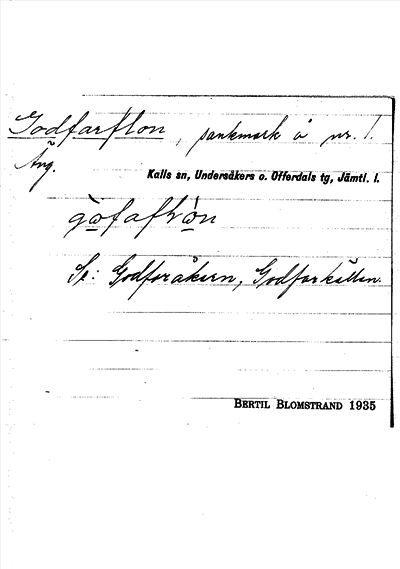 Godfarflon, sankmark å nr. 1.
Äng.
Kalls sn, Undersåkers o. Offerdals tg, Jämtl. l.
Se: Godfaråkern, Godfarkällan.
BERTIL BLOMSTRAND 1935